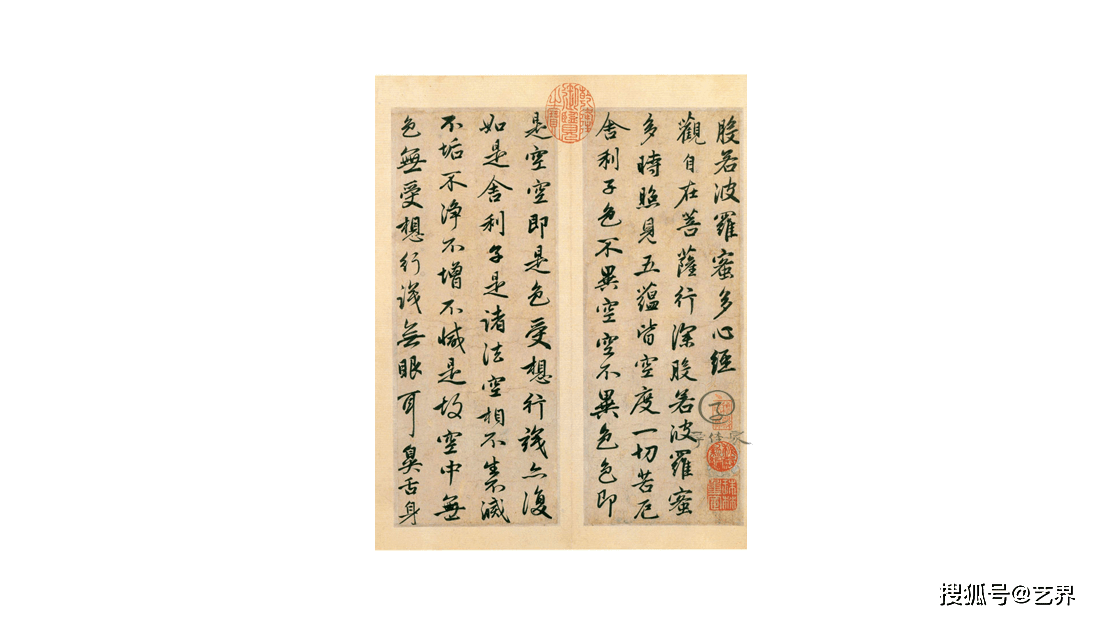 般若波羅蜜多心經
觀自在菩薩行深般若波羅蜜
多時照見五蘊皆空度一切苦厄
舍利子色不異空空不異色色即
是空空即是色受想行識亦復
如是舍利子是諸法空相不生不滅
不垢不淨不增不減是故空中無
色無受想行識無眼耳鼻舌身
乾隆御覽之寶
搜狐号@艺界